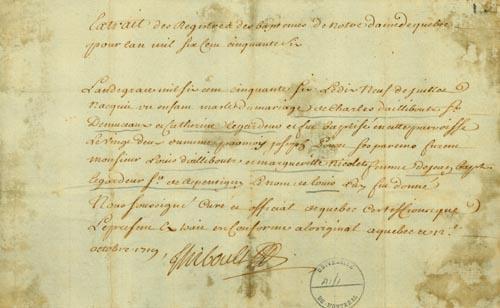 Extrait des Registres des baptemes de notre dame de quebec
pour lan mil six cem cinquante six
Landegrace mil six cem cinquante six Ledix Neuf de juillet
Nacquit vn enfam masle du mariage de Charles dailleboust Sr
Demuceaux et Catherine legardeur et fut baptisé en cette parroisse
Le vingt deux du mesme par Joseph Poncet Ses pareins furem
monsieur Louis dailleboust et margueritte Nicolet femme de jean bapte
legardeur Sr de Repentigny Le nom de louis luy fut donné
Nous soussigné Curé et official de quebec Certiffions que
Le present Extrait est Conforme a loriginal a quebec ce 12e
octobre 1719
Thiboult
UNIVERSITÉ
DE MONTRÉAL